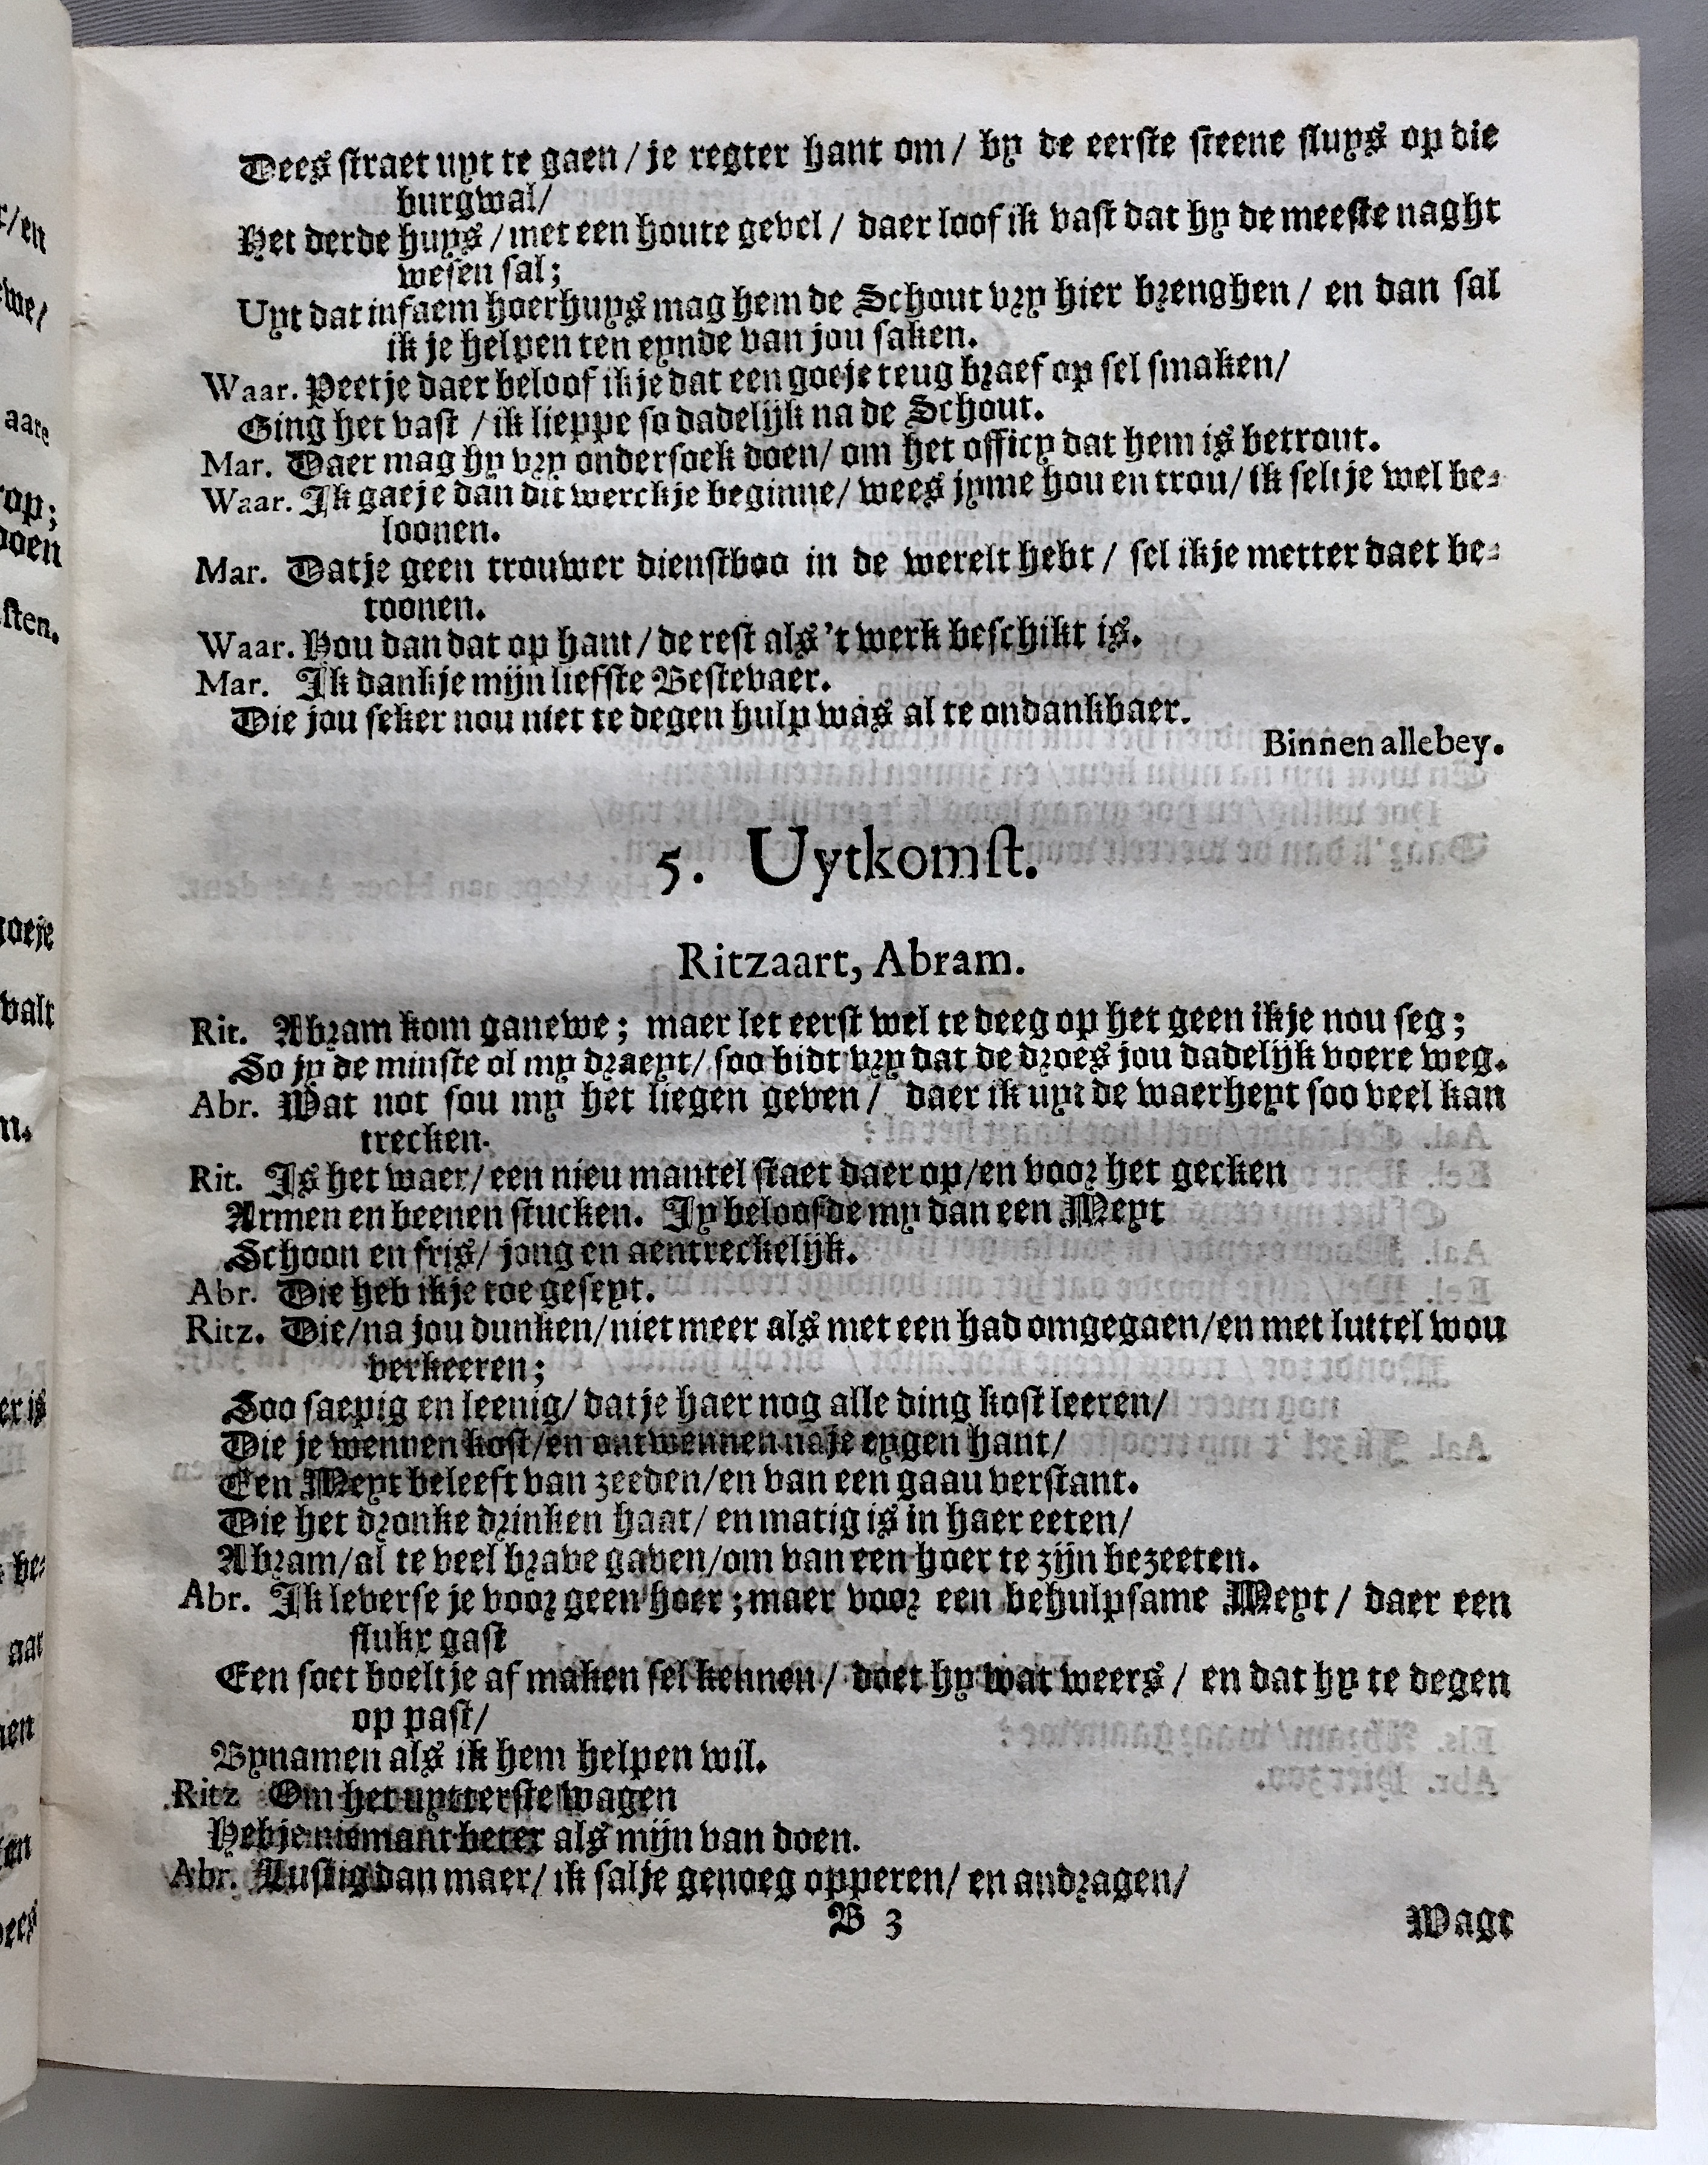 Dees straet uyt te gaen / je regter hant om / by de eerste steene sluys op die
burgwal /
Het derde huys / met een houte gevel / daer loof ik vast dat hy de meeste naght
wesen sal;
Uyt dat infaem hoerhuys mag hem de Schout vry hier brenghen / en dan sal
ik je helpen ten eynde van jou saken.
Waar. Peetje daer beloof ik je dat een goeje teug braef op sel smaken /
Ging het vast / ik lieppe so dadelijk na de Schout.
Mar. Daer mag hy vry ondersoek doen / om het officy dat hem is betrout.
Waar. Ik gaeje dan dit werckje beginne / wees jyme hou en trou / ik selt je wel be-
loonen.
Mar. Datje geen trouwer dienstboo in de werelt hebt / sel ikje metter daet be-
toonen.
Waar. Hou dan dat op hant / de rest als 't werk beschikt is.
Mar. Ik dankje mijn liefste Bestevaer.
Die jou seker nou niet te degen hulp was al te ondankbaer.
Binnen allebey.
5. Uytkomst.
Ritzaart, Abram.
Rit. Abram kom ganewe; maer let eerst wel te deeg op het geen ikje nou seg;
So jy de minste ol my draeyt / soo bidt vry dat de droes jou dadelijk voere weg.
Abr. Wat not sou my het liegen geven / daer ik uyt de waerheyt soo veel kan
trecken.
Rit. Is het waer / een nieu mantel staet daer op / en voor het gecken
Armen en beenen stucken. Jy beloofde my dan een Meyt
Schoon en fris / jong en aentreckelijk.
Abr. Die heb ikje toe geseyt.
Ritz. Die / na jou dunken / niet meer als met een had omgegaen / en met luttel wou
verkeeren;
Soo saepig en leenig / datje haer nog alle ding kost leeren /
Die je wennen kost / en ontwennen na je eygen hant /
Een Meyt beleeft van zeeden / en van een gaau verstant.
Die het dronke drinken haat / en matig is in haer eeten /
Abram / al te veel brave gaven / om van een hoer te zijn bezeeten.
Abr. Ik leverse je voor geen hoer; maer voor een behulpsame Meyt / daer een
flukx gast
Een soet boeltje af maken sel kennen / doet hy wat weers / en dat hy te degen
op past /
Bynamen als ik hem helpen wil.
Ritz Om het uytterste wagen
Heb je niemant beter als mijn van doen.
Abr. Lustig dan maer / ik sal je genoeg opperen / en andragen /
B 3 Wagt